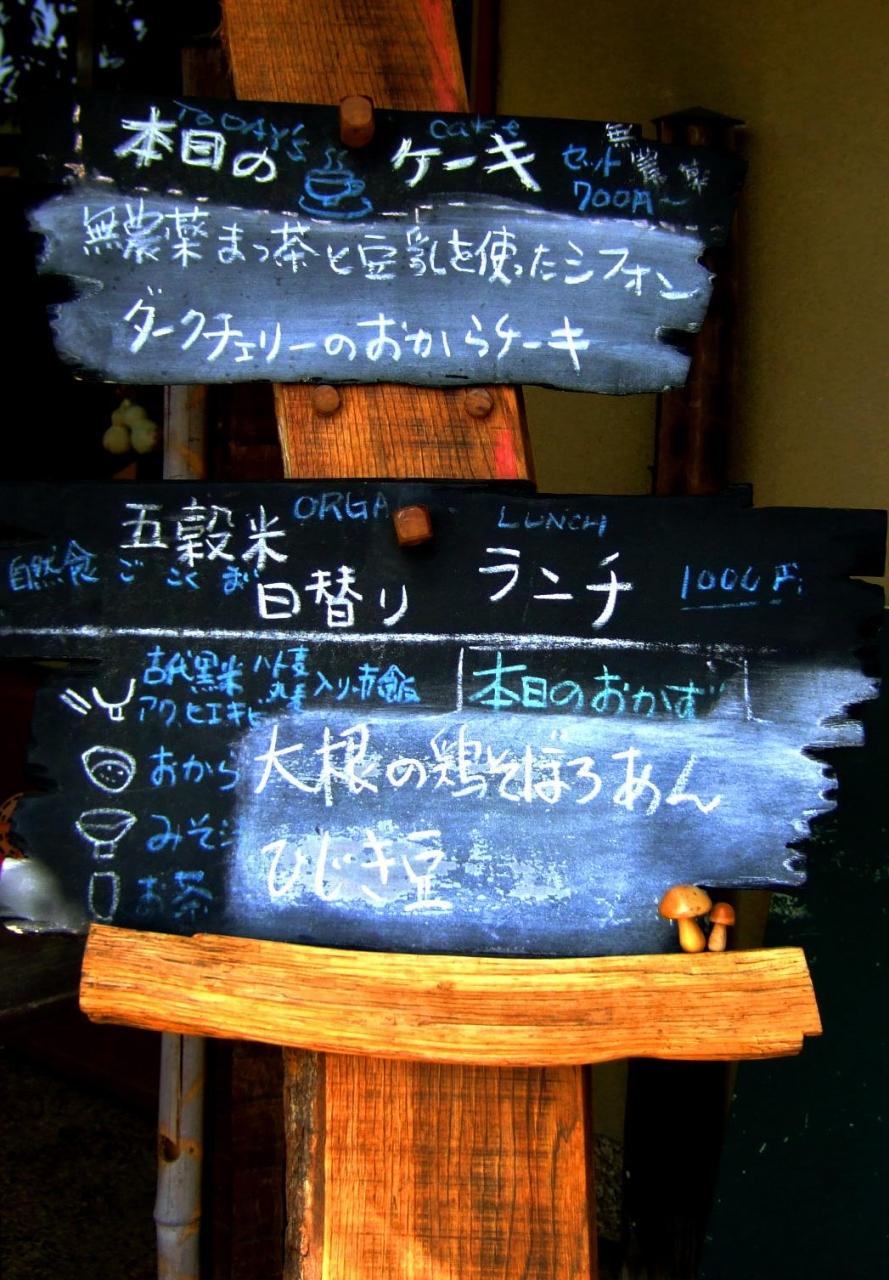 TODAY'S cake
本日の ケーキ セット 無農薬
700円〜
無農薬まっ茶と豆乳を使ったシフォン
ダークチェリーのおからケーキ
ORGA LUNCH
自然食 五穀米 日替り ランチ 1000円
ごこくまい
古代黒米 ハト麦 丸麦 入り赤飯
アワ、ヒエキビ
本日のおかず
おから 大根の鶏そぼろあん
みそシ
お茶 ひじき豆